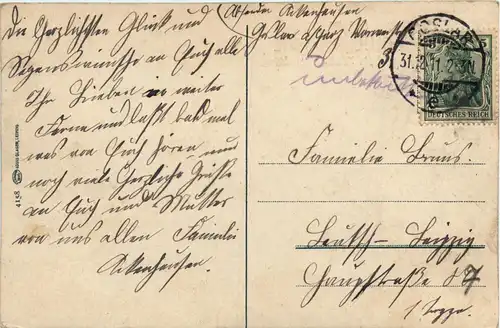 Die Herzlichsten Glück und
Segenswünsche an Euch alle
Ihr Lieben in weiter
Ferne und laßt bald mal
was von Euch hören und
noch viele Herzliche Grüße
an Euch und Mutter
von uns allen Familie
Rikenhausen.
Absender Rikenhausen
Goslar
GOSLAR
31.12.11. 2-3N
DEUTSCHES REICH
Familie Bruns.
Leutsch-Leipzig
Hauptstraße 87
1 Treppe
4158